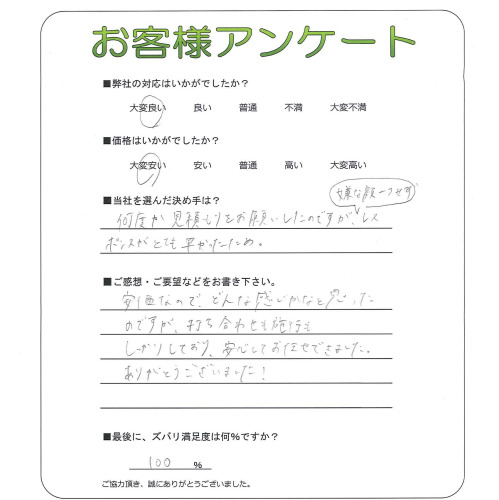 お客様アンケート
■弊社の対応はいかがでしたか？
大変良い 良い 普通 不満 大変不満
■価格はいかがでしたか？
大変安い 安い 普通 高い 大変高い
嫌な顔一つせず
■当社を選んだ決め手は？
何度か見積もりをお願いしたのですが、レス
ポンスがとても早かったため。
■ご感想・ご要望などをお書き下さい。
安価なので、どんな感じかなと思った
のですが、打ち合わせも施行も
しっかりしており、安心してお任せできました。
ありがとうございました！
■最後に、ズバリ満足度は何%ですか？
100 %
ご協力頂き、誠にありがとうございました。